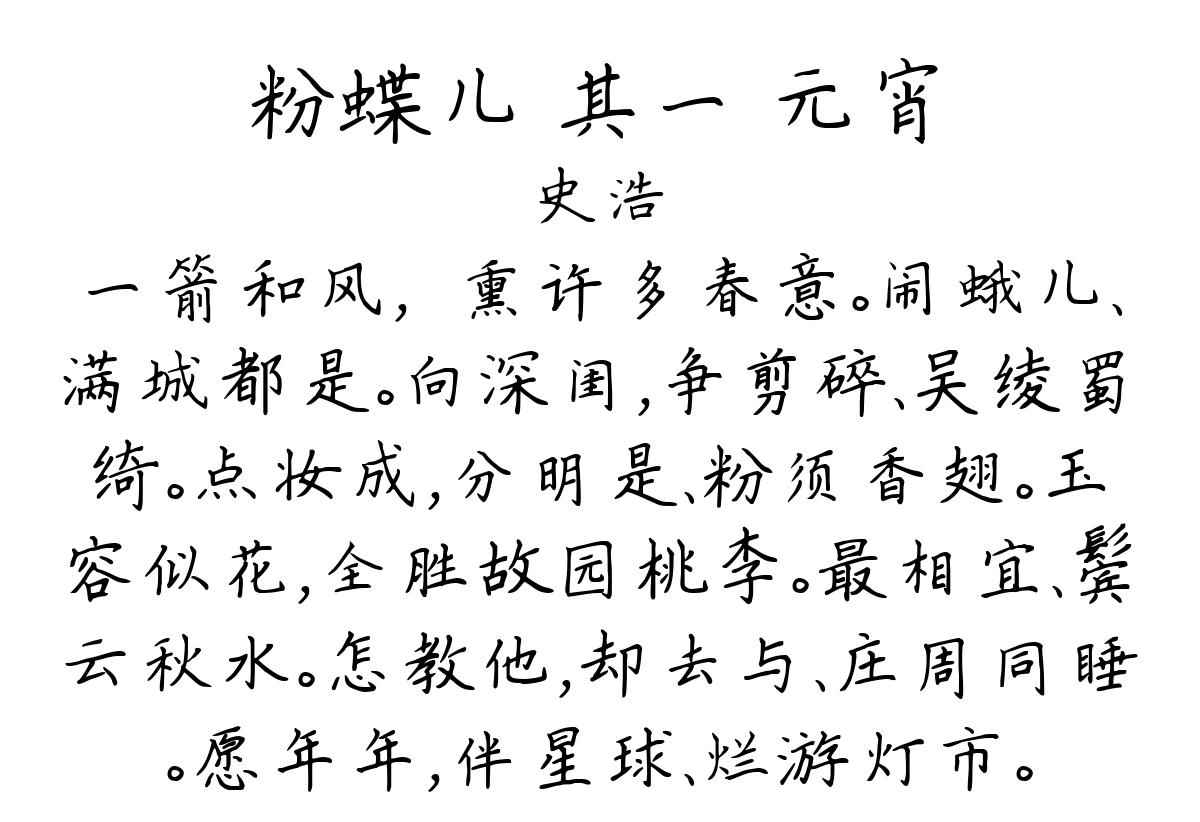 粉蝶儿 其一 元宵
史浩
一箭和风，熏许多春意。闹蛾儿、
满城都是。向深闺，争剪碎、吴绫蜀
绮。点妆成，分明是、粉须香翅。玉
容似花，全胜故园桃李。最相宜、鬓
云秋水。怎教他，却去与、庄周同睡
。愿年年，伴星球、烂游灯市。